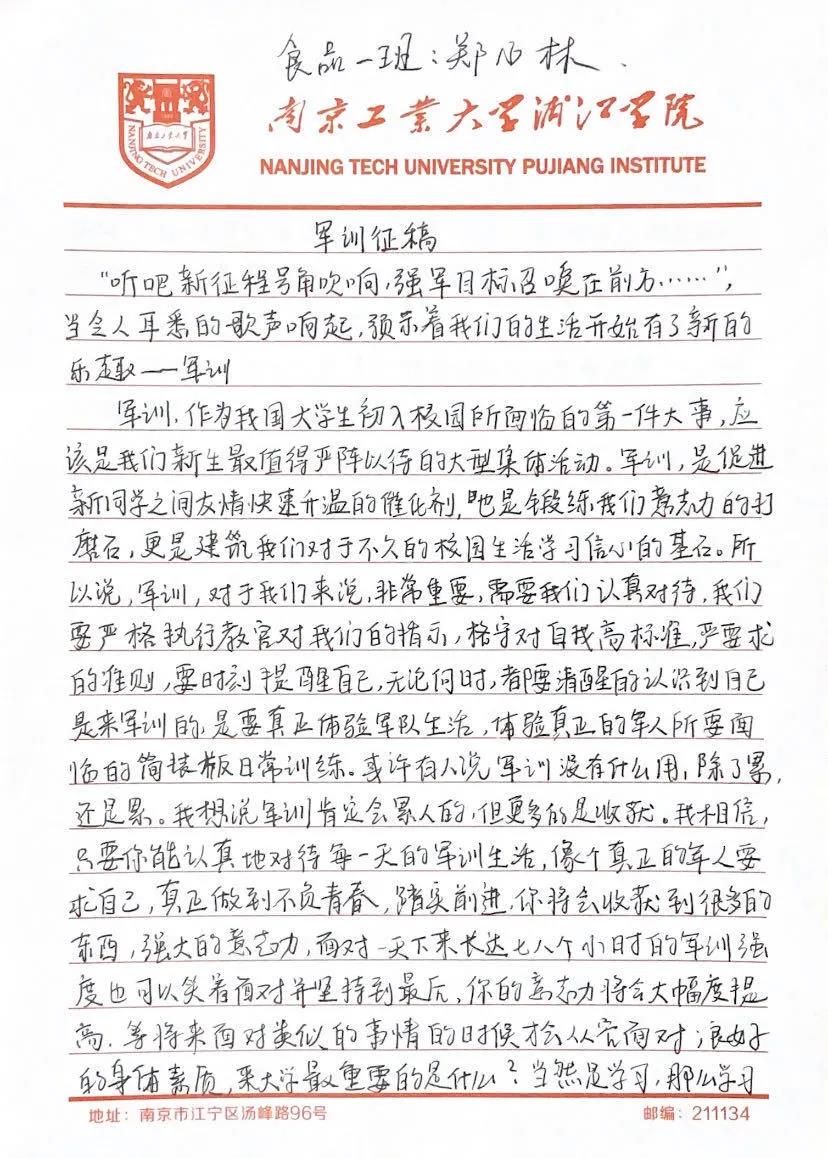 食品一班：郑心林.
南京工业大学浦江学院
NANJING TECH UNIVERSITY PUJIANG INSTITUTE
南京工业大学
NANJING TECH UNIVERSITY
军训征稿
“听吧新征程号角吹响，强军目标召唤在前方……”，
当令人耳悉的歌声响起，预示着我们的生活开始有了新的
乐趣——军训
军训，作为我国大学生初入校园所面临的第一件大事，应
该是我们新生最值得严阵以待的大型集体活动。军训，是促进
新同学之间友情快速升温的催化剂，也是锻练我们意志力的打
磨石，更是建筑我们对于不久的校园生活学习信心的基石。所
以说，军训，对于我们来说，非常重要，需要我们认真对待，我们
要严格执行教官对我们的指示，格守对自我高标准，严要求
的准则，要时刻提醒自己，无论何时，都要清醒的认识到自己
是来军训的，是要真正体验军队生活，体验真正的军人所要面
临的简装版日常训练。或许有人说军训没有什么用，除了累，
还是累。我想说军训肯定会累人的，但更多的是收获。我相信，
只要你能认真地对待每一天的军训生活，像个真正的军人要
求自己，真正做到不负青春，踏实前进，你将会收获到很多的
东西，强大的意志力，面对一天下来长达七八个小时的军训强
度也可以笑着面对并坚持到最后，你的意志力将会大幅度提
高，等将来面对类似的事情的时候才会从容面对；良好
的身体素质，来大学最重要的是什么？当然是学习，那么学习
地址：南京市江宁区汤峰路96号
邮编：211134